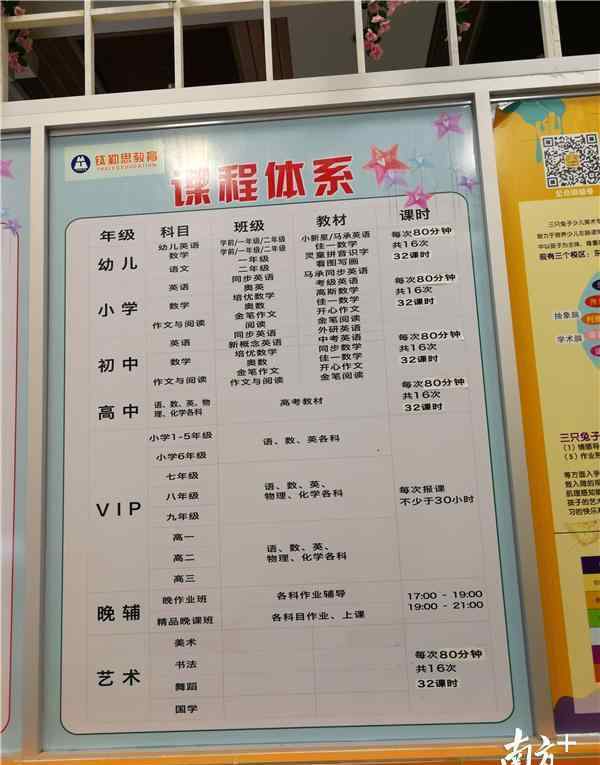 钛勒思教育
课程体系
年级 科目 班级 教材 课时
幼儿 幼儿英语 学前/一年级/二年级 小新星/马承英语 每次80分钟
数学 学前/一年级/二年级 佳一数学 共16次
语文 一年级 灵童拼音识字 32课时
二年级 看图写画
小学 英语 同步英语 马承同步英语 每次80分钟
奥英 考级英语 共16次
数学 培优数学 高斯数学 32课时
奥数 佳一数学
作文与阅读 金笔作文 开心作文
阅读 金笔阅读
初中 英语 同步英语 外研英语 每次80分钟
新概念英语 中考英语 共16次
数学 培优数学 同步数学 32课时
奥数 佳一数学
作文与阅读 金笔作文 开心作文
作文与阅读 金笔阅读
高中 语、数、英、物 高考教材 每次80分钟
理、化学各科 共16次
32课时
VIP 小学1-5年级 语、数、英各科
小学6年级
七年级 语、数、英、 每次报课
八年级 物理、化学各科 不少于30小时
九年级
高一
高二 语、数、英、
物理、化学各科
高三
晚辅 晚作业班 各科作业辅导 17:00 - 19:00
精品晚课班 各科目作业、上课 19:00 - 21:00
艺术 美术 每次80分钟
书法 共16次
舞蹈 32课时
国学
三只兔子少儿美术专
现有三个校区：东
抽象脑
学术脑
三只兔子
（1）情感导
（5）作业形
等方面入手
做入微的观
肌理感知能
孩子的艺术
习的快乐
南方+